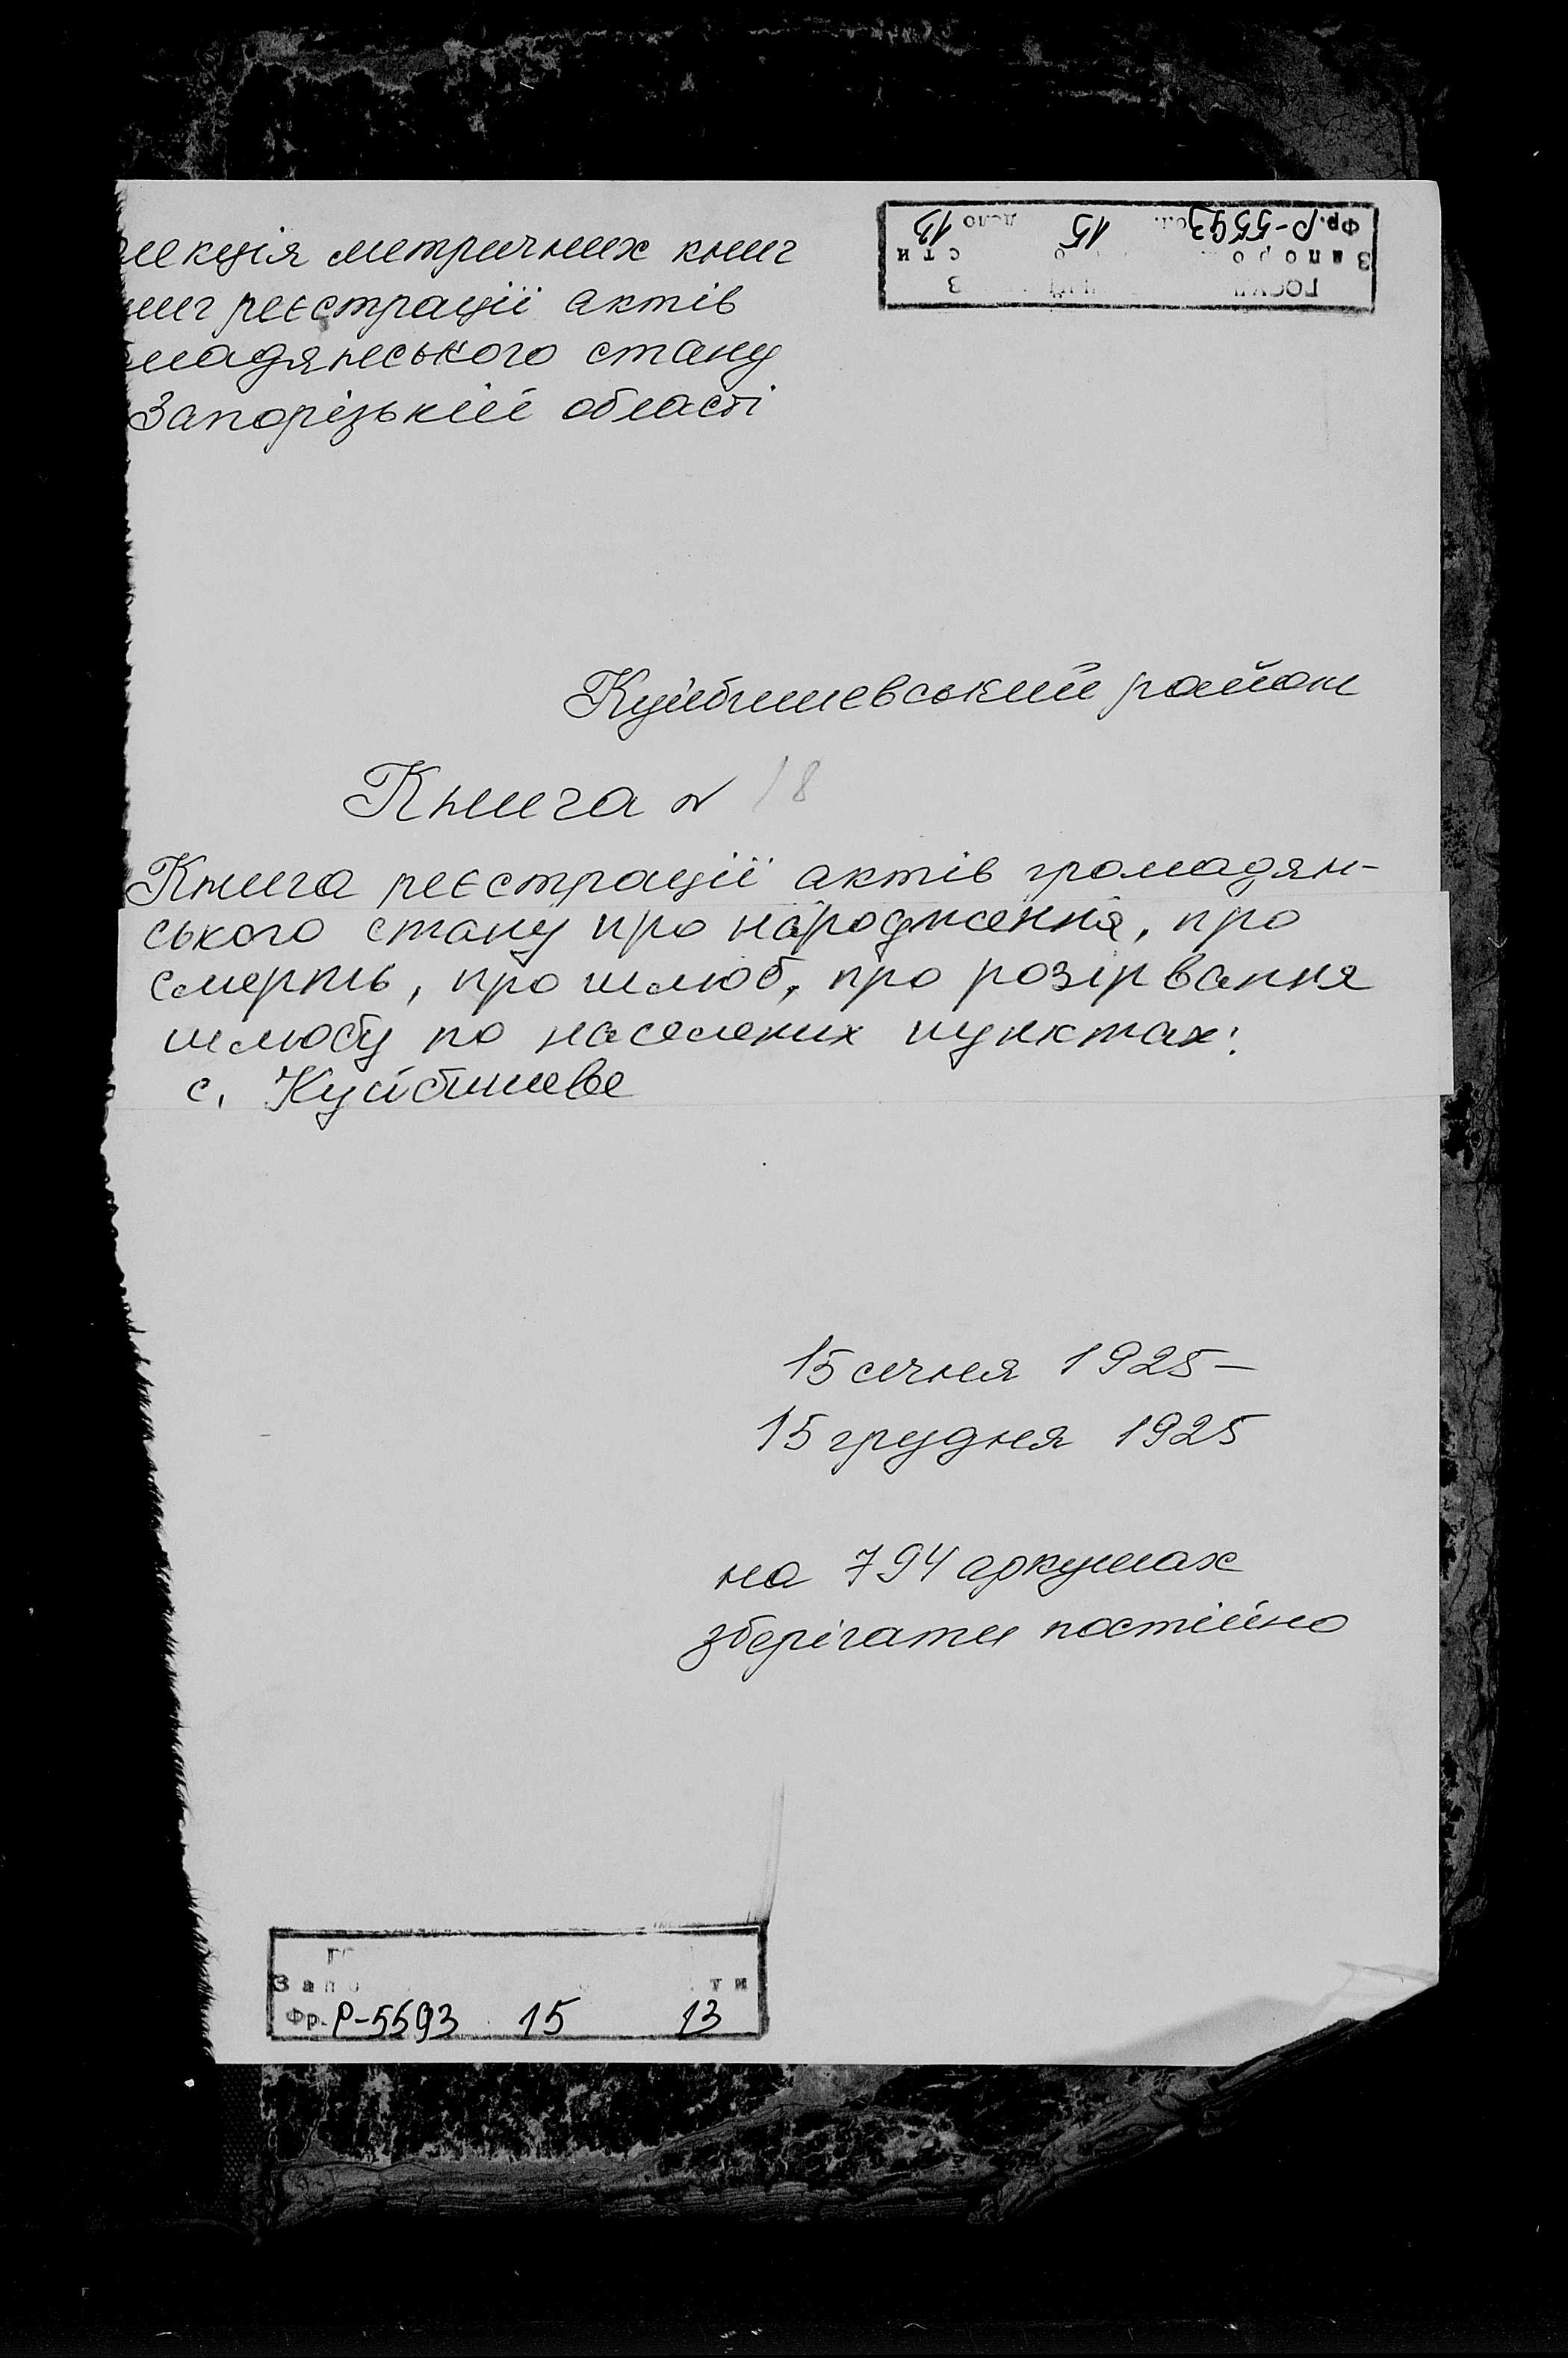 лекція метричних книг
ниг реєстрації актів
мадянського стану
Запорізькій області
Фр. Р-5593 15 дело 13
Куйбишевський район
Книга № 18
Книга реєстрації актів громадян-
ського стану про народження, про
смерть, про шлюб, про розірвання
шлюбу по населених пунктах:
с. Куйбишеве
15 січня 1925 –
15 грудня 1925
на 794 аркушах
зберігати постійно
Фр. Р-5593 15 13